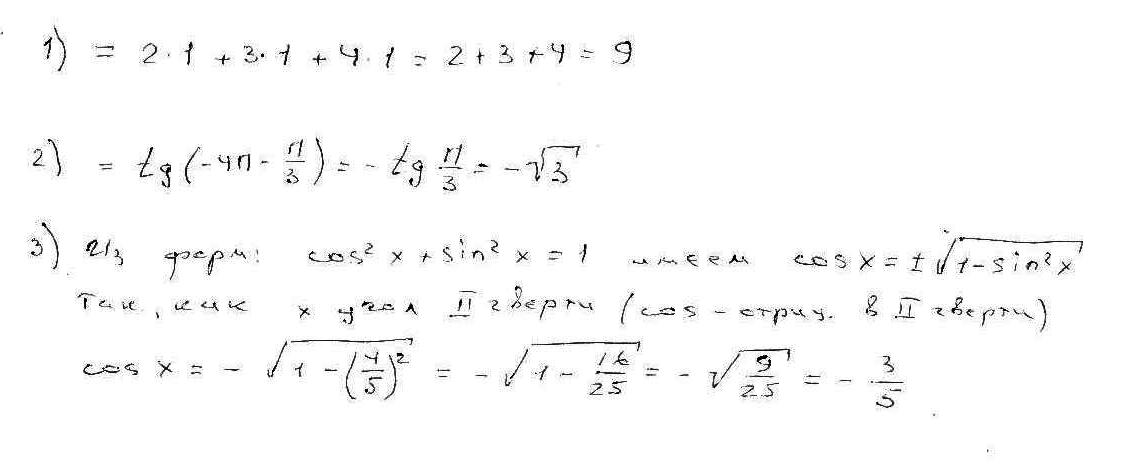 1) = 2·1 + 3·1 + 4·1 = 2+3+4 = 9
2) = tg(-4π - π/3) = - tg π/3 = -√3
3) Из форм: cos² x + sin² x = 1 имеем cos x = ±√(1-sin²x)
Так, как x угол II четверти (cos - отриц. в II четверти)
cos x = - √(1-(4/5)²) = - √(1 - 16/25) = - √(9/25) = - 3/5